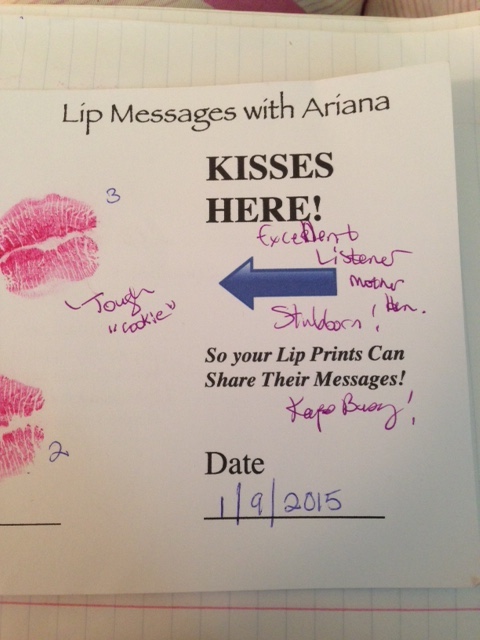 Lip Messages with Ariana
KISSES
HERE!
3
Excellent
Listener
Mother
Hen.
Tough
"cookie"
Stubborn!
So your Lip Prints Can
Share Their Messages!
2
Date
1/9/2015